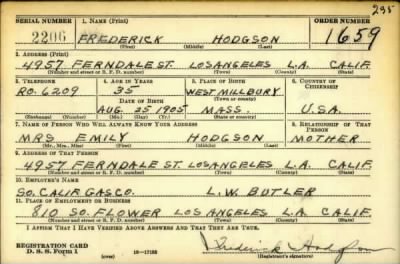 295
SERIAL NUMBER 1. NAME (Print) ORDER NUMBER
2206 FREDERICK HODGSON 1659
(First) (Middle) (Last)
2. ADDRESS (Print)
4957 FERNDALE ST. LOS ANGELES L.A. CALIF.
(Number and street or R. F. D. number) (Town) (County) (State)
3. TELEPHONE 4. AGE IN YEARS 5. PLACE OF BIRTH 6. COUNTRY OF CITIZENSHIP
RO. 6209 35 WEST MILLBURY
DATE OF BIRTH (Town or county)
AUG. 25 1905 MASS. U.S.A.
(Exchange) (Number) (Mo.) (Day) (Yr.) (State or country)
7. NAME OF PERSON WHO WILL ALWAYS KNOW YOUR ADDRESS 8. RELATIONSHIP OF THAT PERSON
MRS EMILY HODGSON MOTHER
(Mr., Mrs., Miss) (First) (Middle) (Last)
9. ADDRESS OF THAT PERSON
4957 FERNDALE ST. LOS ANGELES L.A. CALIF.
(Number and street or R. F. D. number) (Town) (County) (State)
10. EMPLOYER'S NAME
SO. CALIF. GAS CO. L. W. BUTLER
11. PLACE OF EMPLOYMENT OR BUSINESS
810 SO. FLOWER LOS ANGELES L.A. CALIF.
(Number and street or R. F. D. number) (Town) (County) (State)
I AFFIRM THAT I HAVE VERIFIED ABOVE ANSWERS AND THAT THEY ARE TRUE.
REGISTRATION CARD
D. S. S. Form 1 (over) 16—17105 Frederick Hodgson
(Registrant's signature)